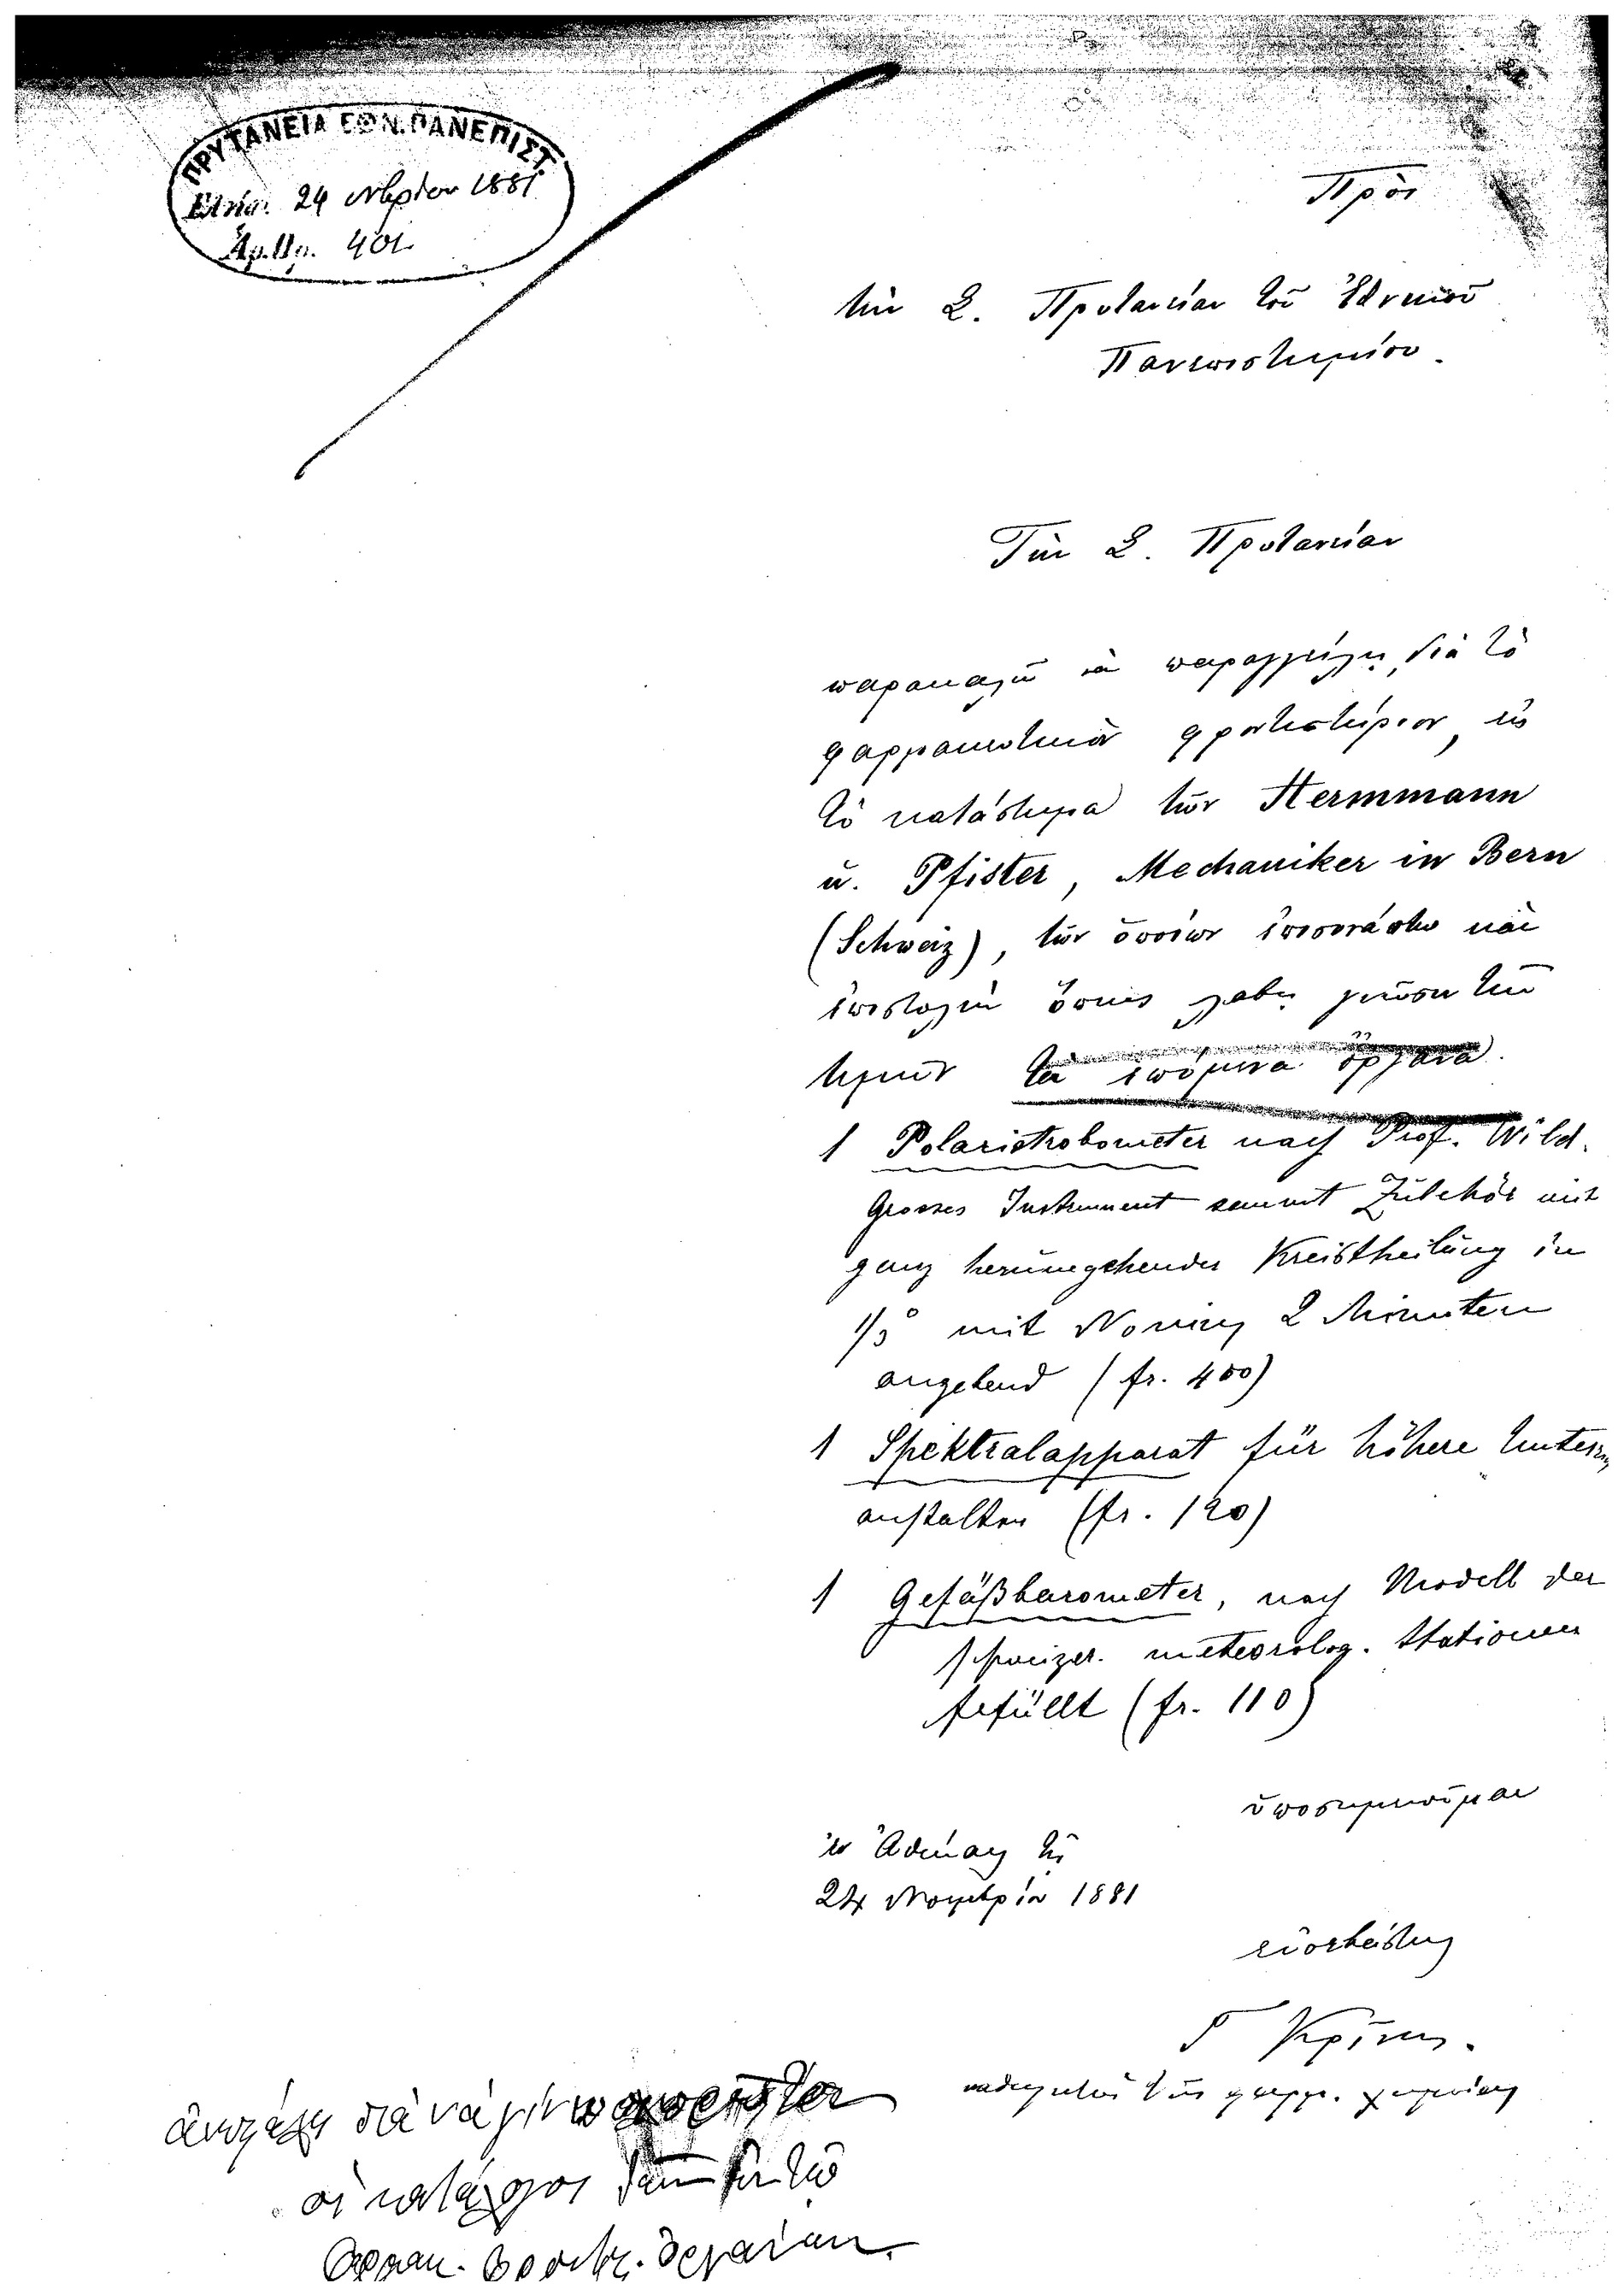 ΠΡΥΤΑΝΕΙΑ ΕΘΝ. ΠΑΝΕΠΙΣΤ.
Ελήφ. 24 Νβρίου 1881
Ἀρ. Πρ. 401
Πρὸς
τὴν Σ. Πρυτανείαν τοῦ Ἐθνικοῦ
Πανεπιστημίου.
Τὴν Σ. Πρυτανείαν
παρακαλῶ νὰ παραγγείλῃ διὰ τὸ
φαρμακευτικὸν φροντιστήριον, εἰς
τὸ κατάστημα τῶν Hermmann
u. Pfister, Mechaniker in Bern
(Schweiz), τῶν ὁποίων ἐπισυνάπτω καὶ
ἐπιστολὴν ὅπως λάβῃ γνῶσιν τῶν
τιμῶν τὰ ἑπόμενα ὄργανα.
1 Polaristrobometer nach Prof. Wild.
Grosses Instrument sammt Zubehör mit
ganz herumgehender Kreistheilung in
1/3° mit 2 Minuten
angebend (fr. 400)
1 Spektralapparat für höhere
anstalten (fr. 120)
1 Gefäßbarometer, nach Modell der
schweizer. meteorolog. Stationen
gefüllt (fr. 110)
ὑποσημειοῦμαι
ἐν Ἀθήναις τῇ
24 Νοεμβρίου 1881
εὐπειθέστατος
Κρίνος.
καθηγητὴς τῆς φαρμ. χημείας
οἱ κατάλογοι